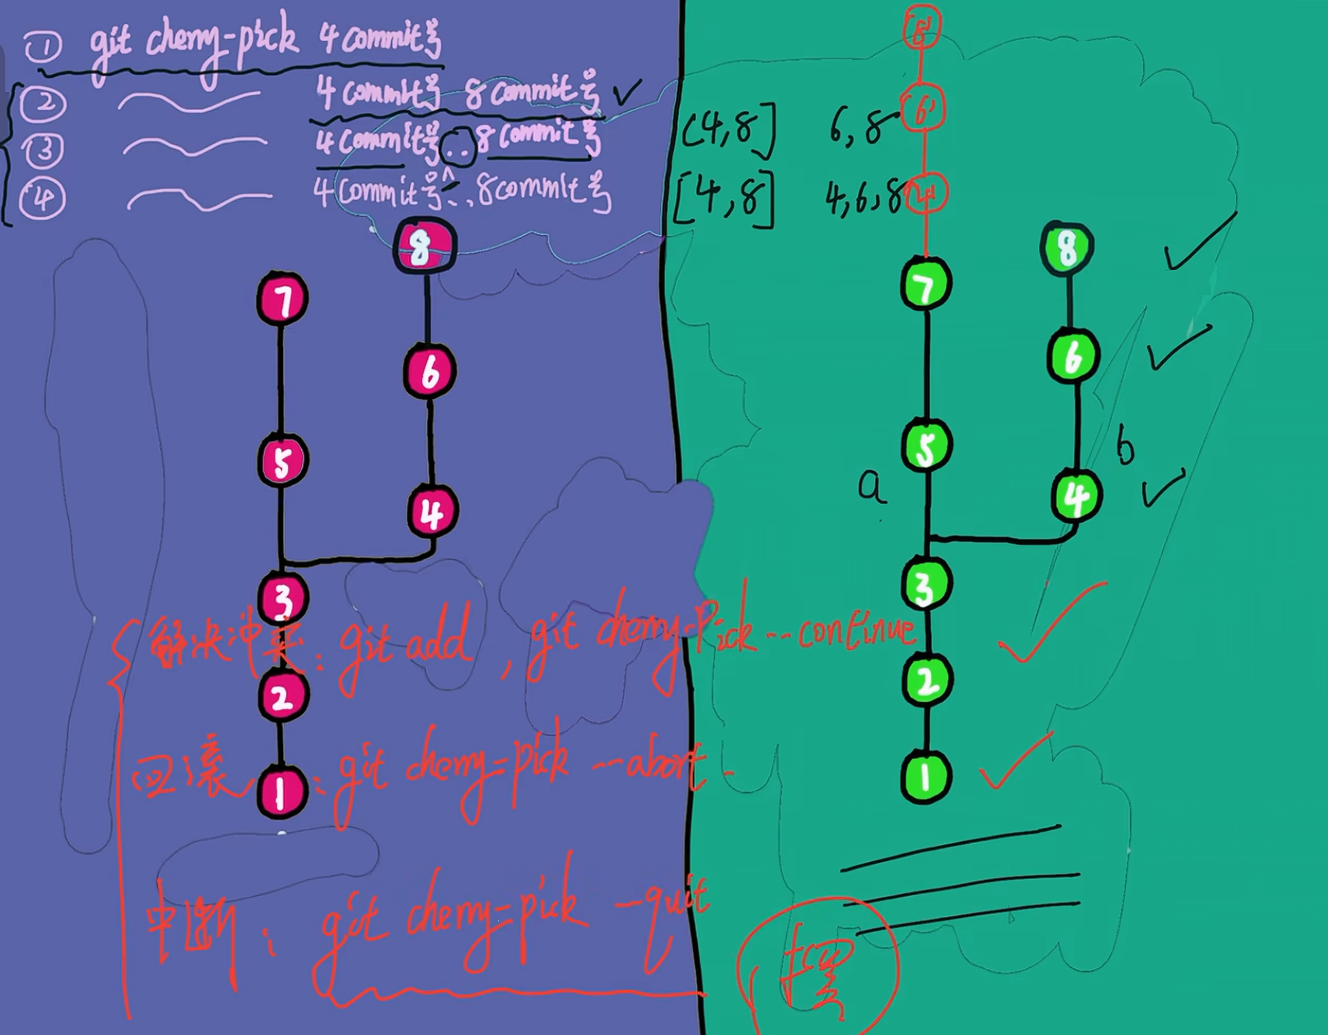 ① git cherry-pick 4 commit号
② 4 commit号 8 commit号
③ 4 commit号..8 commit号 (4,8] 6,8
④ 4 commit号^..8 commit号 [4,8] 4,6,8
8'
6'
4'
8
7
6
5
4
3
2
1
8
7
6
5
b
a
4
3
2
1
解决冲突: git add, git cherry-pick --continue
回滚: git cherry-pick --abort.
中断: git cherry-pick --quit